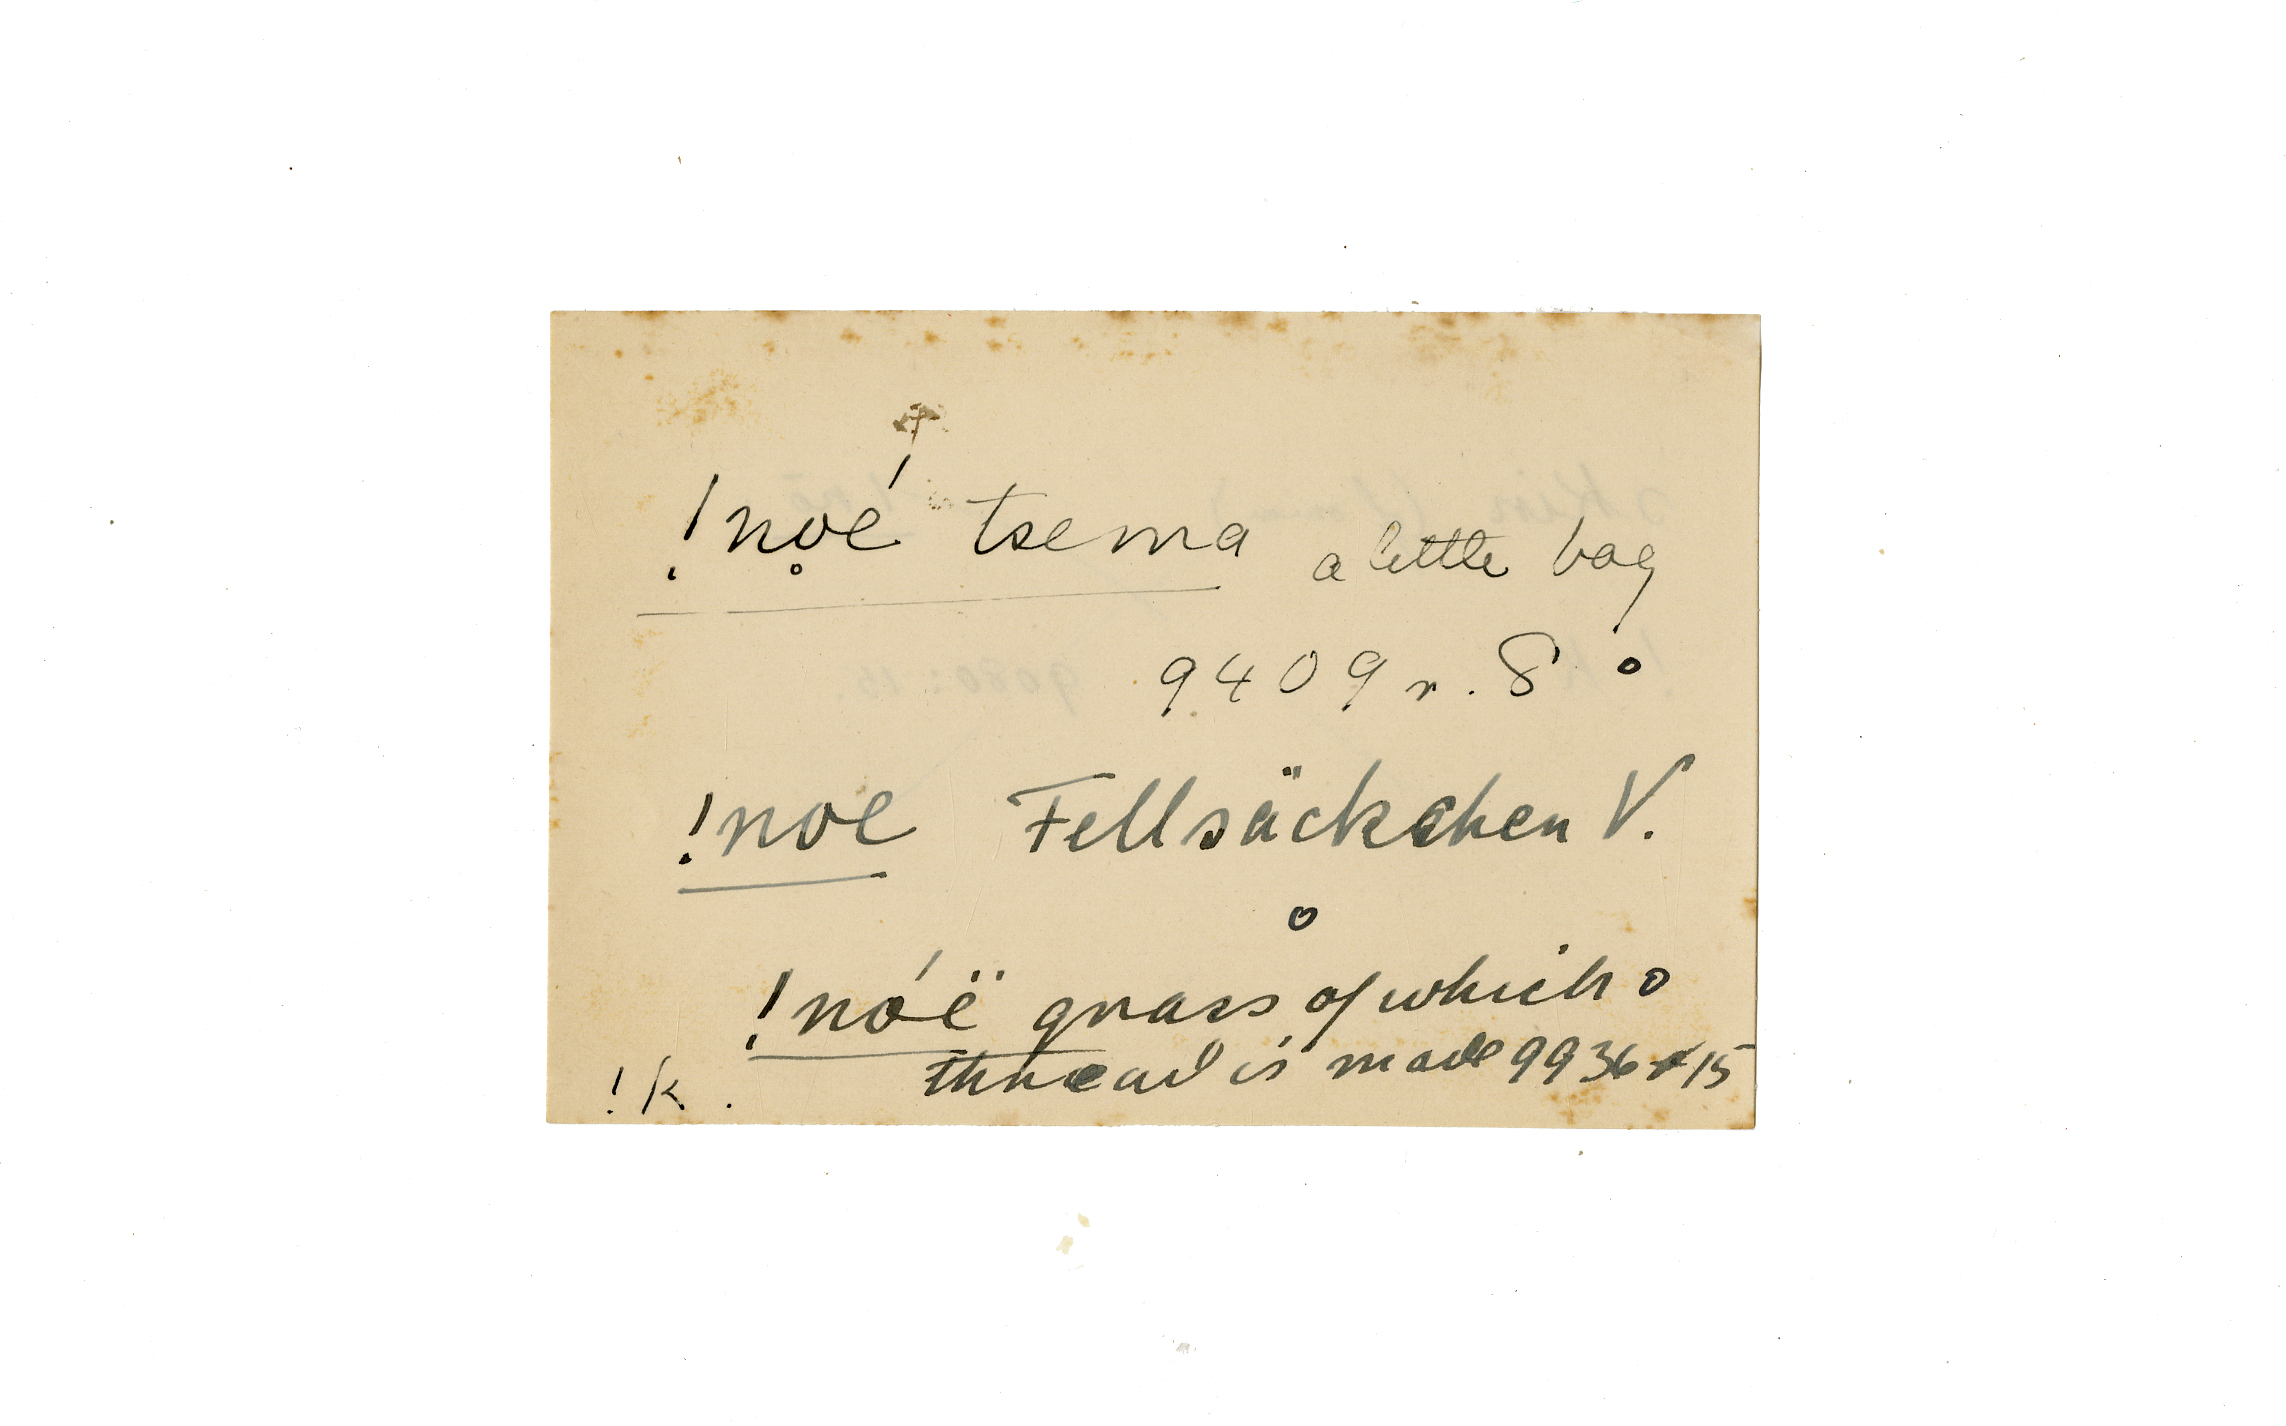 !no̥é tsema a little bag
9409 r. 8 o
!noe Fellsäckchen V.
o
!nóë grass of which o
thread is made 9936 r 15
!k.